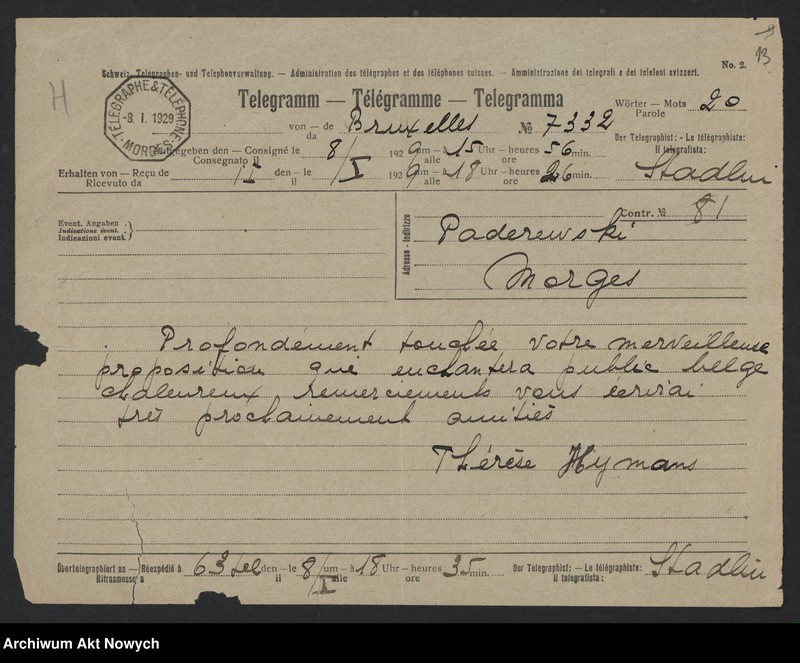 13
No. 2.
Schweiz. Telegraphen- und Telephonverwaltung. — Administration des télégraphes et des téléphones suisses. — Amministrazione dei telegrafi e dei telefoni svizzeri.
H
TÉLÉGRAPHE & TÉLÉPHONE
-8. I. 1929
MORGES
Telegramm — Télégramme — Telegramma
Wörter — Mots 20
Parole
von — de Bruxelles № 7332
da
Der Telegraphist: - Le télégraphiste:
Il telegrafista:
Aufgegeben den — Consigné le 8/I 1929 um — à 15 Uhr — heures 56 min.
Consegnato il alle ore
Stadlin
Erhalten von — Reçu de 15 den — le /I 1929 um — à 18 Uhr — heures 26 min.
Ricevuto da il alle ore
Event. Angaben
Indications évent.
Indicazioni event.
Adresse - Indirizzo
Contr. № 81
Paderewski
Morges
Profondément touchée votre merveilleuse
proposition qui enchantera public belge
chaleureux remerciements vous écrirai
très prochainement amitiés
Thérèse Hymans
Übertelegraphiert an — Réexpédié à 63 tel den — le 8/I um — à 18 Uhr — heures 35 min.
Ritrasmesso a il alle ore
Der Telegraphist: — Le télégraphiste:
Il telegrafista:
Stadlin
Archiwum Akt Nowych